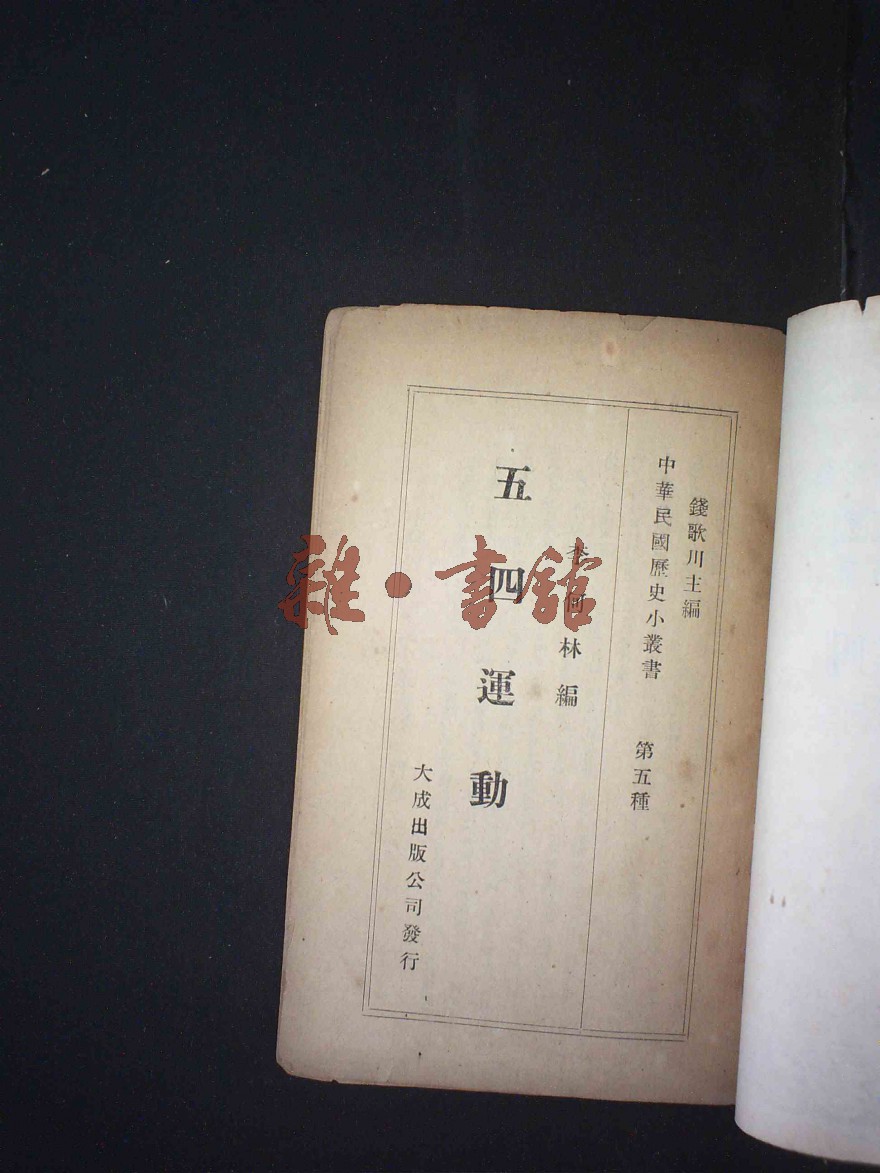 錢歌川主編
中華民國歷史小叢書 第五種
李何林編
五四運動
大成出版公司發行
雜·書館